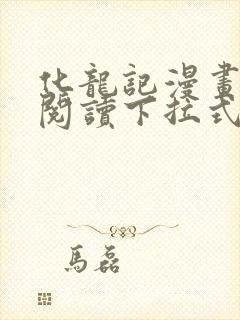 化龍記漫畫
閱讀下拉式
馬磊